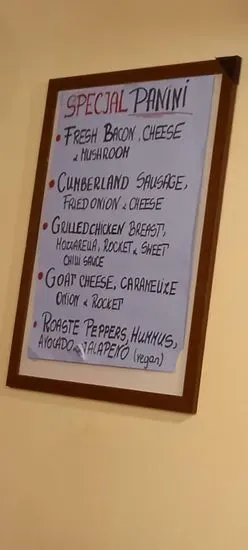 SPECIAL PANINI
• FRESH BACON, CHEESE
& MUSHROOM
• CUMBERLAND SAUSAGE,
FRIED ONION & CHEESE
• GRILLED CHICKEN BREAST,
MOZZARELLA, ROCKET & SWEET
CHILLI SAUCE
• GOAT CHEESE, CARAMELIZE
ONION & ROCKET
• ROASTE PEPPERS, HUMMUS,
AVOCADO & JALAPENO (vegan)